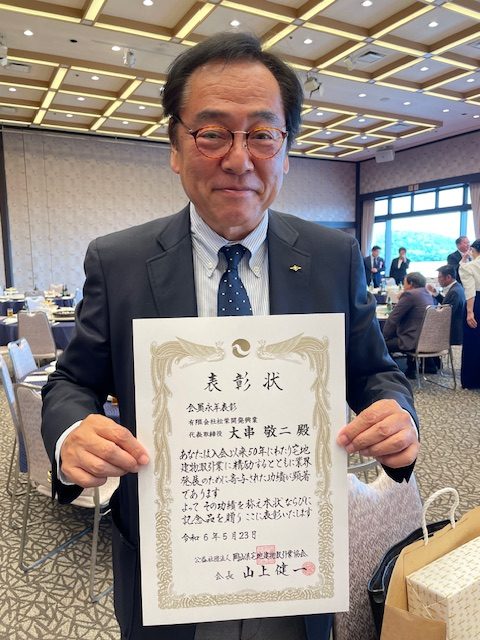 表彰状
会員永年表彰
有限会社松葉開発興業
代表取締役 大串 敬二 殿
あなたは入会以来50年にわたり宅地
建物取引業に精励するとともに業界
発展のために寄与された功績が顕著
であります
よって その功績を称え本状ならびに
記念品を贈り ここに表彰いたします
令和6年5月23日
公益社団法人 岡山県宅地建物取引業協会
会長 山上健一